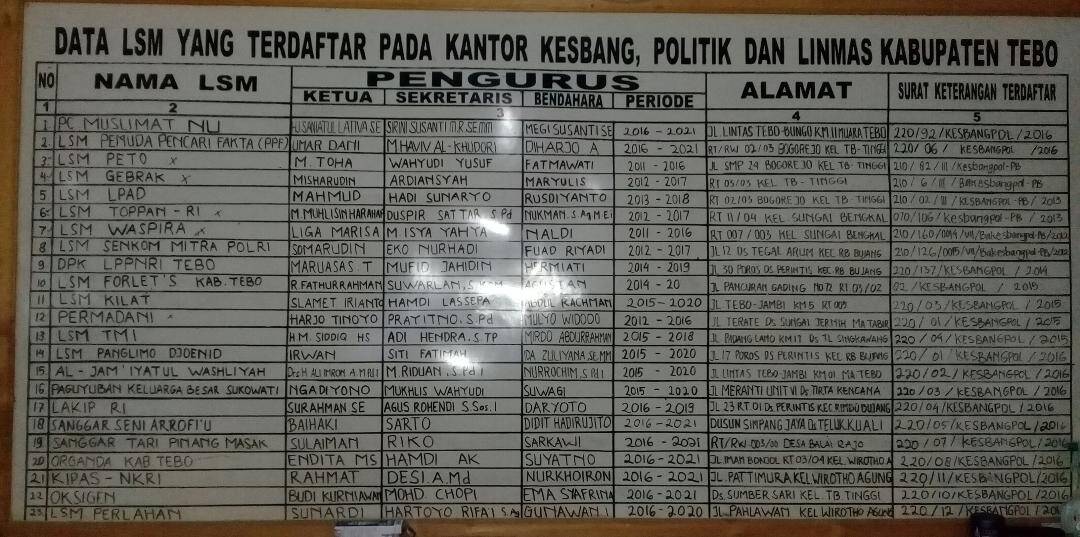 DATA LSM YANG TERDAFTAR PADA KANTOR KESBANG, POLITIK DAN LINMAS KABUPATEN TEBO
NO NAMA LSM PENGURUS ALAMAT SURAT KETERANGAN TERDAFTAR
KETUA SEKRETARIS BENDAHARA PERIODE
1 2 3 4 5
1 PC MUSLIMAT NU SIRINI SUSANTI MEGI SUSANTI SE 2016 - 2021 JL. LINTAS TEBO-BUNGO KM 11 MUARA TEBO 220/92/KESBANGPOL/2016
2. LSM PEMUDA PENCARI FAKTA (PPF) UMAR DANI M HAVIV AL-KHUDORI DIHARJO A 2016 - 2021 RT/RW 02/03 BOGOREJO KEL TB-TINGGI 220/06/ KESBANGPOL /2016
3. LSM PETO x M. TOHA WAHYUDI YUSUF FATMAWATI 2011 - 2016 JL SMP 24 BOGOREJO KEL TB-TINGGI 210/82/III/Kesbangpol-PB
4. LSM GEBRAK x MISHARUDIN ARDIANSYAH MARYULIS 2012 - 2017 RT 03/03 KEL TB - TINGGI 210/6/III/Bakesbangpol-PB
5 LSM LPAD MAHMUD HADI SUNARYO RUSDIYANTO 2013 - 2018 RT 02/03 BOGOREJO KEL TB-TINGGI 210/02/III/KESBANGPOL-PB/2013
6. LSM TOPPAN - RI x M. MUHLISIM HARAHAP DUSPIR SATTAR. S.Pd NUKMAN. S.Ag 2012 - 2017 RT 11/04 KEL SUNGAI BENGKAL 070/106/Kesbangpol-PB / 2013
7. LSM WASPIRA x LIGA MARISA M. ISYA YAHYA NALDI 2011 - 2016 RT 007/003 KEL SUNGAI BENGKAL
8 LSM SENKOM MITRA POLRI SOMARUDIN EKO NURHADI FUAD RIYADI 2012 - 2017 JL 12 DS TEGAL ARUM KEL RB BUJANG
9 DPK LPPNRI TEBO MARUASAS. T MUFID JAHIDIN HERMIATI 2014 - 2019 JL 30 POROS DS PERINTIS KEC RB BUJANG 220/137/KESBANGPOL / 2014
10 LSM FORLET'S KAB. TEBO R. FATHURRAHMAN SUWARLAN AGUSTAN 2014 - 20 JL PANCURAN GADING RT 03/02 KESBANGPOL / 2015
11 LSM KILAT SLAMET IRIANTO HAMDI LASSEPA ABDUL RACHMAN 2015-2020 JL TEBO-JAMBI KM 5 RT 003 220/03/KESBANGPOL/2015
12 PERMADANI x HARJO TINOYO PRAYITNO. S.Pd MULYO WIDODO 2012 - 2016 JL TERATE Ds SUNGAI JERNIH MA TABIR 220/01/KESBANGPOL/2015
13 LSM TMI H.M. SIDDIQ HS ADI HENDRA. S.TP MIRDO ABDURRAHMAN 2015 - 2018 JL PADANG LAMO KM 17 Ds TL SINGKAWANG 220/04/KESBANGPOL/2015
14 LSM PANGLIMO DJOENID IRWAN SITI FATIMAH ZULIYANA.SE.MM 2015 - 2020 JL 17 POROS DS PERINTIS KEL RB BUJANG 220/01 KESBANGPOL /2016
15. AL-JAM'IYATUL WASHLIYAH M RIDUAN. S Pd I NURROCHIM. S Pd I 2015 - 2020 JL LINTAS TEBO-JAMBI KM 01 MA TEBO 220/02/KESBANGPOL/2016
16 PAGUYUBAN KELUARGA BESAR SUKOWATI NGADIYONO MUKHLIS WAHYUDI SUWAGI 2015 - 2020 JL MERANTI UNIT VI Ds TIRTA KENCANA 220/03/KESBANGPOL/2016
17 LAKIP RI SURAHMAN SE AGUS ROHENDI S.Sos.I DARYOTO 2016-2019 JL 23 RT 01 Ds PERINTIS KEC RIMBO BUJANG 220/04/KESBANGPOL/2016
18 SANGGAR SENI ARROFI'U BAIHAKI SARTO DIDIT HADIRUJITO 2016-2021 DUSUN SIMPANG JAYA Ds TELUK KUALI 220/05/KESBANGPOL/2016
19 SANGGAR TARI PINANG MASAK SULAIMAN RIKO SARKAWI 2016 - 2021 RT/RW 003/00 DESA BALAI RAJO 220 /07/ KESBANGPOL/2016
20 ORGANDA KAB TEBO ENDITA MS HAMDI AK SUYATNO 2016-2021 JL.IMAM BONJOL RT 03/04 KEL WIROTHO A 220/08/KESBANGPOL/2016
21 KIPAS - NKRI RAHMAT DESI. A.Md NURKHOIRON 2016-2021 JL. PATTIMURA KEL WIROTHO AGUNG 220/11/KESBANGPOL/2016
22 OKSIGEN BUDI KURNIAWAN MOHD CHOPI EMA SYAFRINA 2016-2021 Ds. SUMBER SARI KEL TB TINGGI 220/10/KESBANGPOL/2016
23 LSM PERLAHAN SUNARDI HARTOYO RIFAI S.Ag GUNAWAN 2016-2020 JL. PAHLAWAN KEL WIROTHO AGUNG 220/12/KESBANGPOL/201